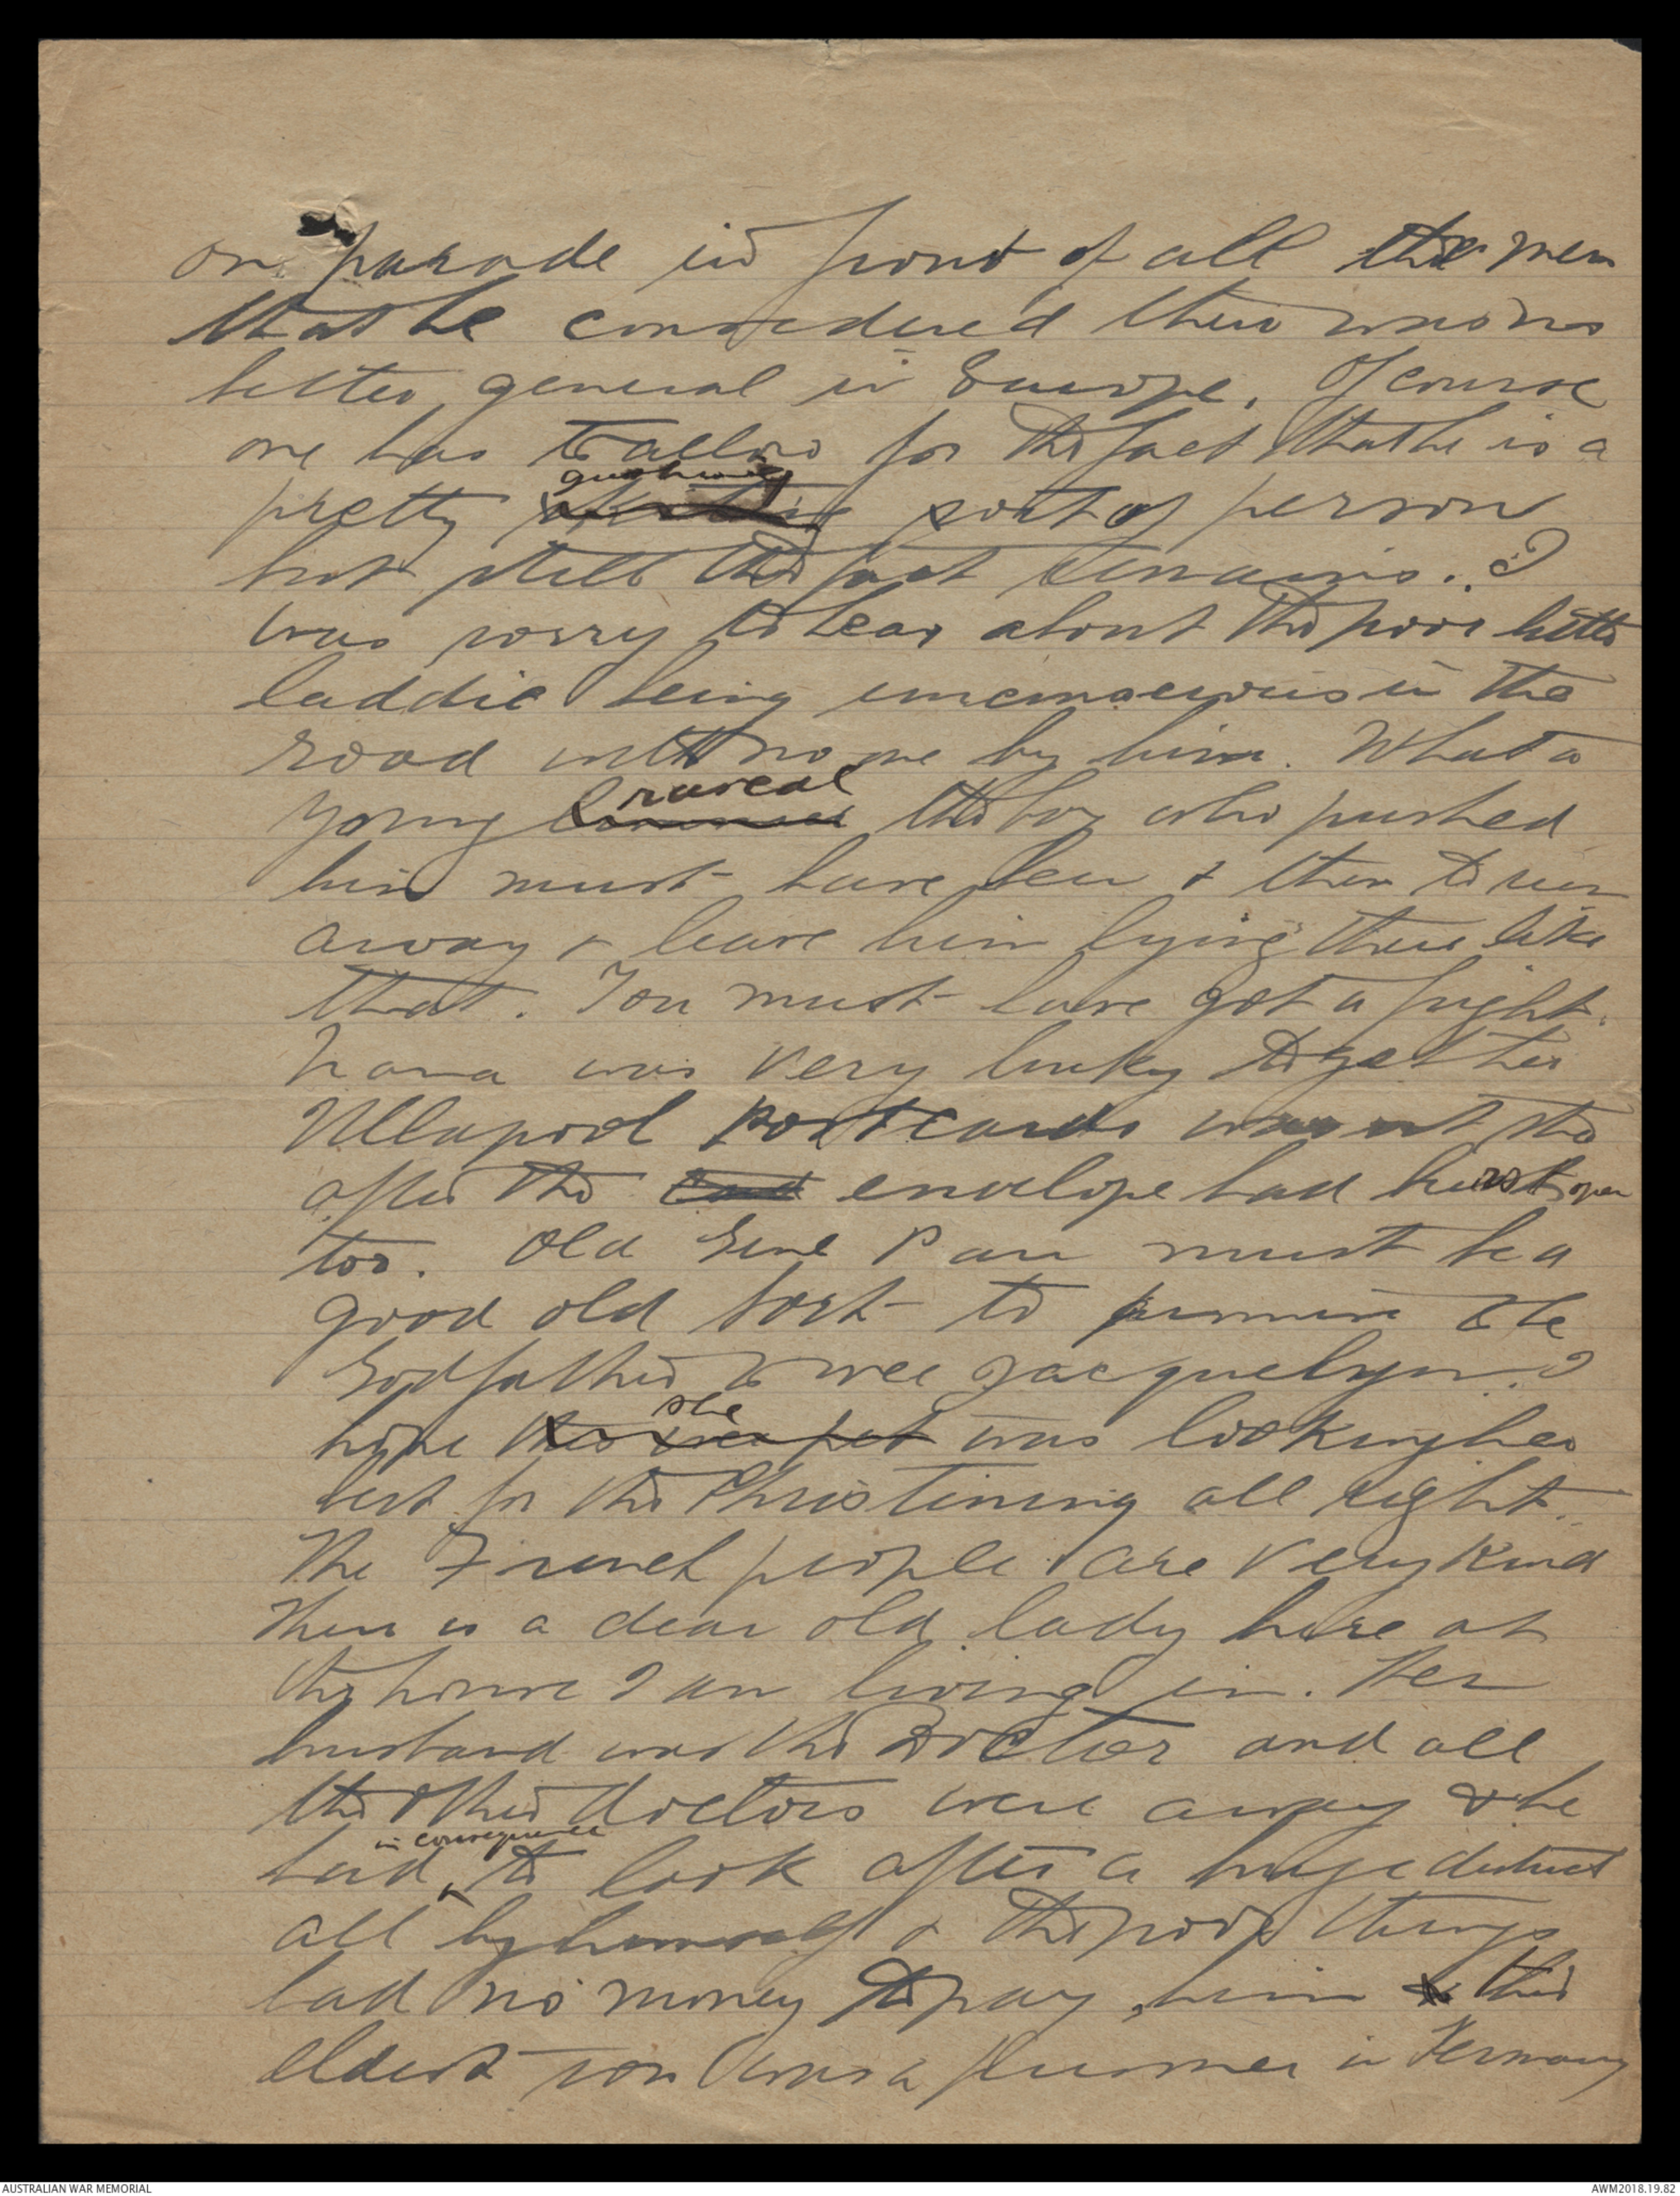 on parade in front of all the men
that he considered there was no
better general in Europe. Of course
one has to allow for the fact that he is a
gushing
pretty sort of person
but still the fact remains. I
was sorry to hear about the poor little
laddie being unconscious in the
road with no one by him. What a
rascal
young the boy who pushed
him must have been & then to run
away & leave him lying there like
that. You must have got a fright.
Nana was very lucky to get her
Ullapool postcards wasn't she
after the envelope had burst open
too. Old Genl Pau must be a
good old sort to promise to be
Godfather to wee Jacquelyn. I
she
hope was looking her
best for the Christining all right.
The French people are very kind
There is a dear old lady here at
the house I am living in. Her
husband was the Doctor and all
the other doctors were away & he
in consequence
had ^ to look after a huge district
all by himself & the poor things
had no money to pay him the
eldest son was a prisoner in Germany
AUSTRALIAN WAR MEMORIAL
AWM2018.19.82